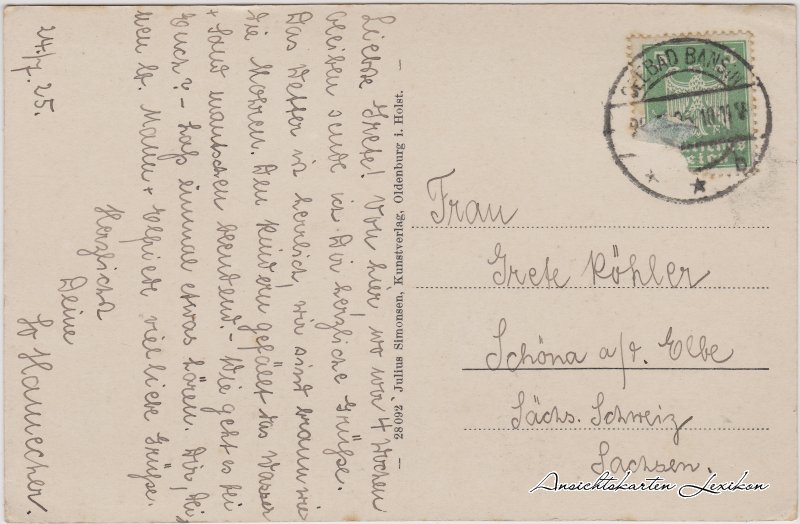 24./7. 25.
Liebste Grete! Von hier, wo wir 4 Wochen
bleiben sende ich Dir herzliche Grüße.
Das Wetter ist herrlich, wir sind braun wie
die Mohren. Den Kindern gefällt das Wasser
+ Sand mantschen blendend. - Wie geht es bei
Euch? - laß einmal etwas hören. Dir, Dei-
nen lb. Mann + Elfriede viel liebe Grüße.
Herzlichst
Deine
Hannecher.
— 28092 Julius Simonsen, Kunstverlag, Oldenburg i. Holst. —
SEEBAD BANSIN
Frau
Grete Köhler
Schöna a/d. Elbe
Sächs. Schweiz
Sachsen.
Ansichtskarten Lexikon